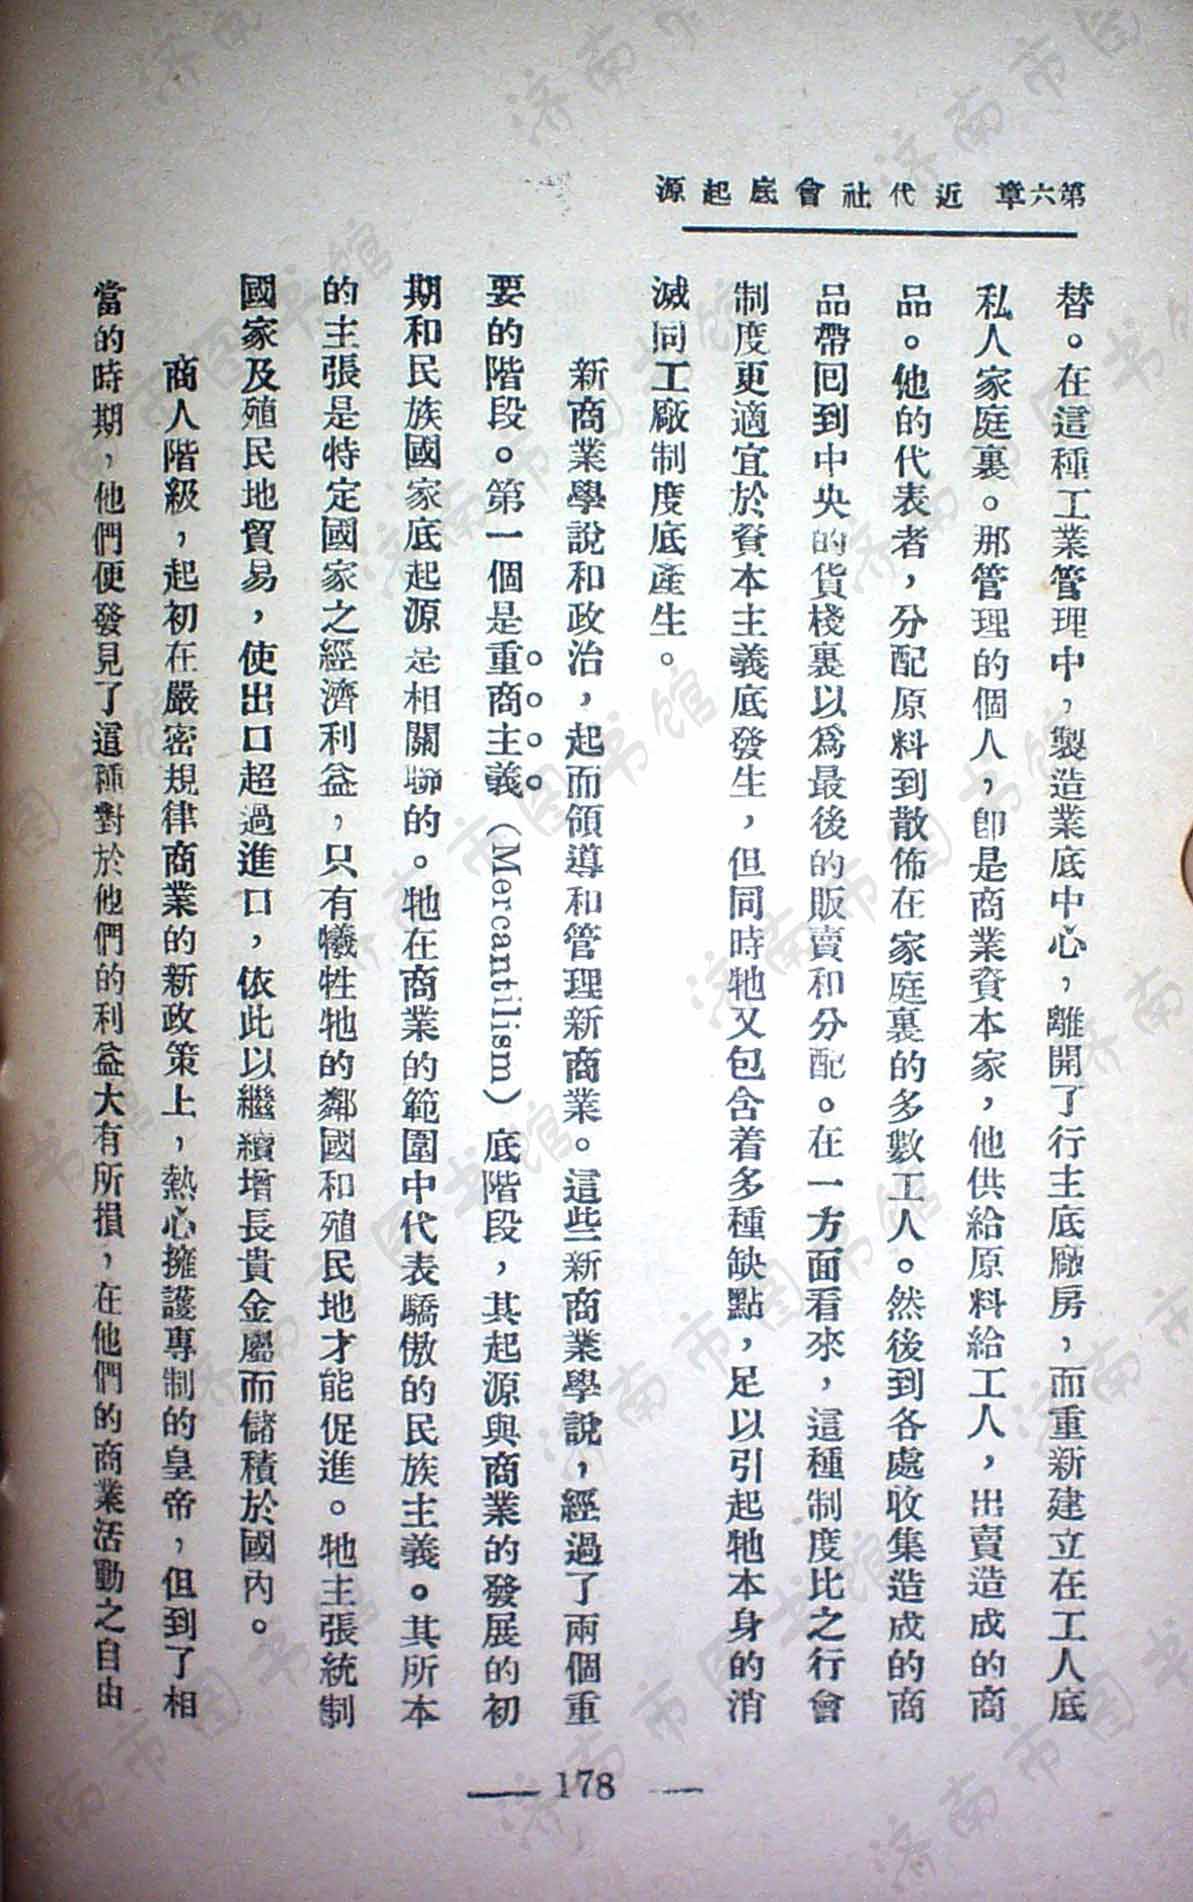 第六章 近代社會底起源
替。在這種工業管理中，製造業底中心，離開了行主底廠房，而重新建立在工人底
私人家庭裏。那管理的個人，卽是商業資本家，他供給原料給工人，出賣造成的商
品。他的代表者，分配原料到散佈在家庭裏的多數工人。然後到各處收集造成的商
品帶回到中央的貨棧裏以爲最後的販賣和分配。在一方面看來，這種制度比之行會
制度更適宜於資本主義底發生，但同時牠又包含着多種缺點，足以引起牠本身的消
滅同工廠制度底產生。
新商業學說和政治，起而領導和管理新商業。這些新商業學說，經過了兩個重
要的階段。第一個是重商主義（Mercantilism）底階段，其起源與商業的發展的初
期和民族國家底起源是相關聯的。牠在商業的範圍中代表驕傲的民族主義。其所本
的主張是特定國家之經濟利益，只有犧牲牠的鄰國和殖民地才能促進。牠主張統制
國家及殖民地貿易，使出口超過進口，依此以繼續增長貴金屬而儲積於國內。
商人階級，起初在嚴密規律商業的新政策上，熱心擁護專制的皇帝，但到了相
當的時期，他們便發見了這種對於他們的利益大有所損，在他們的商業活動之自由
178
济南市图书馆